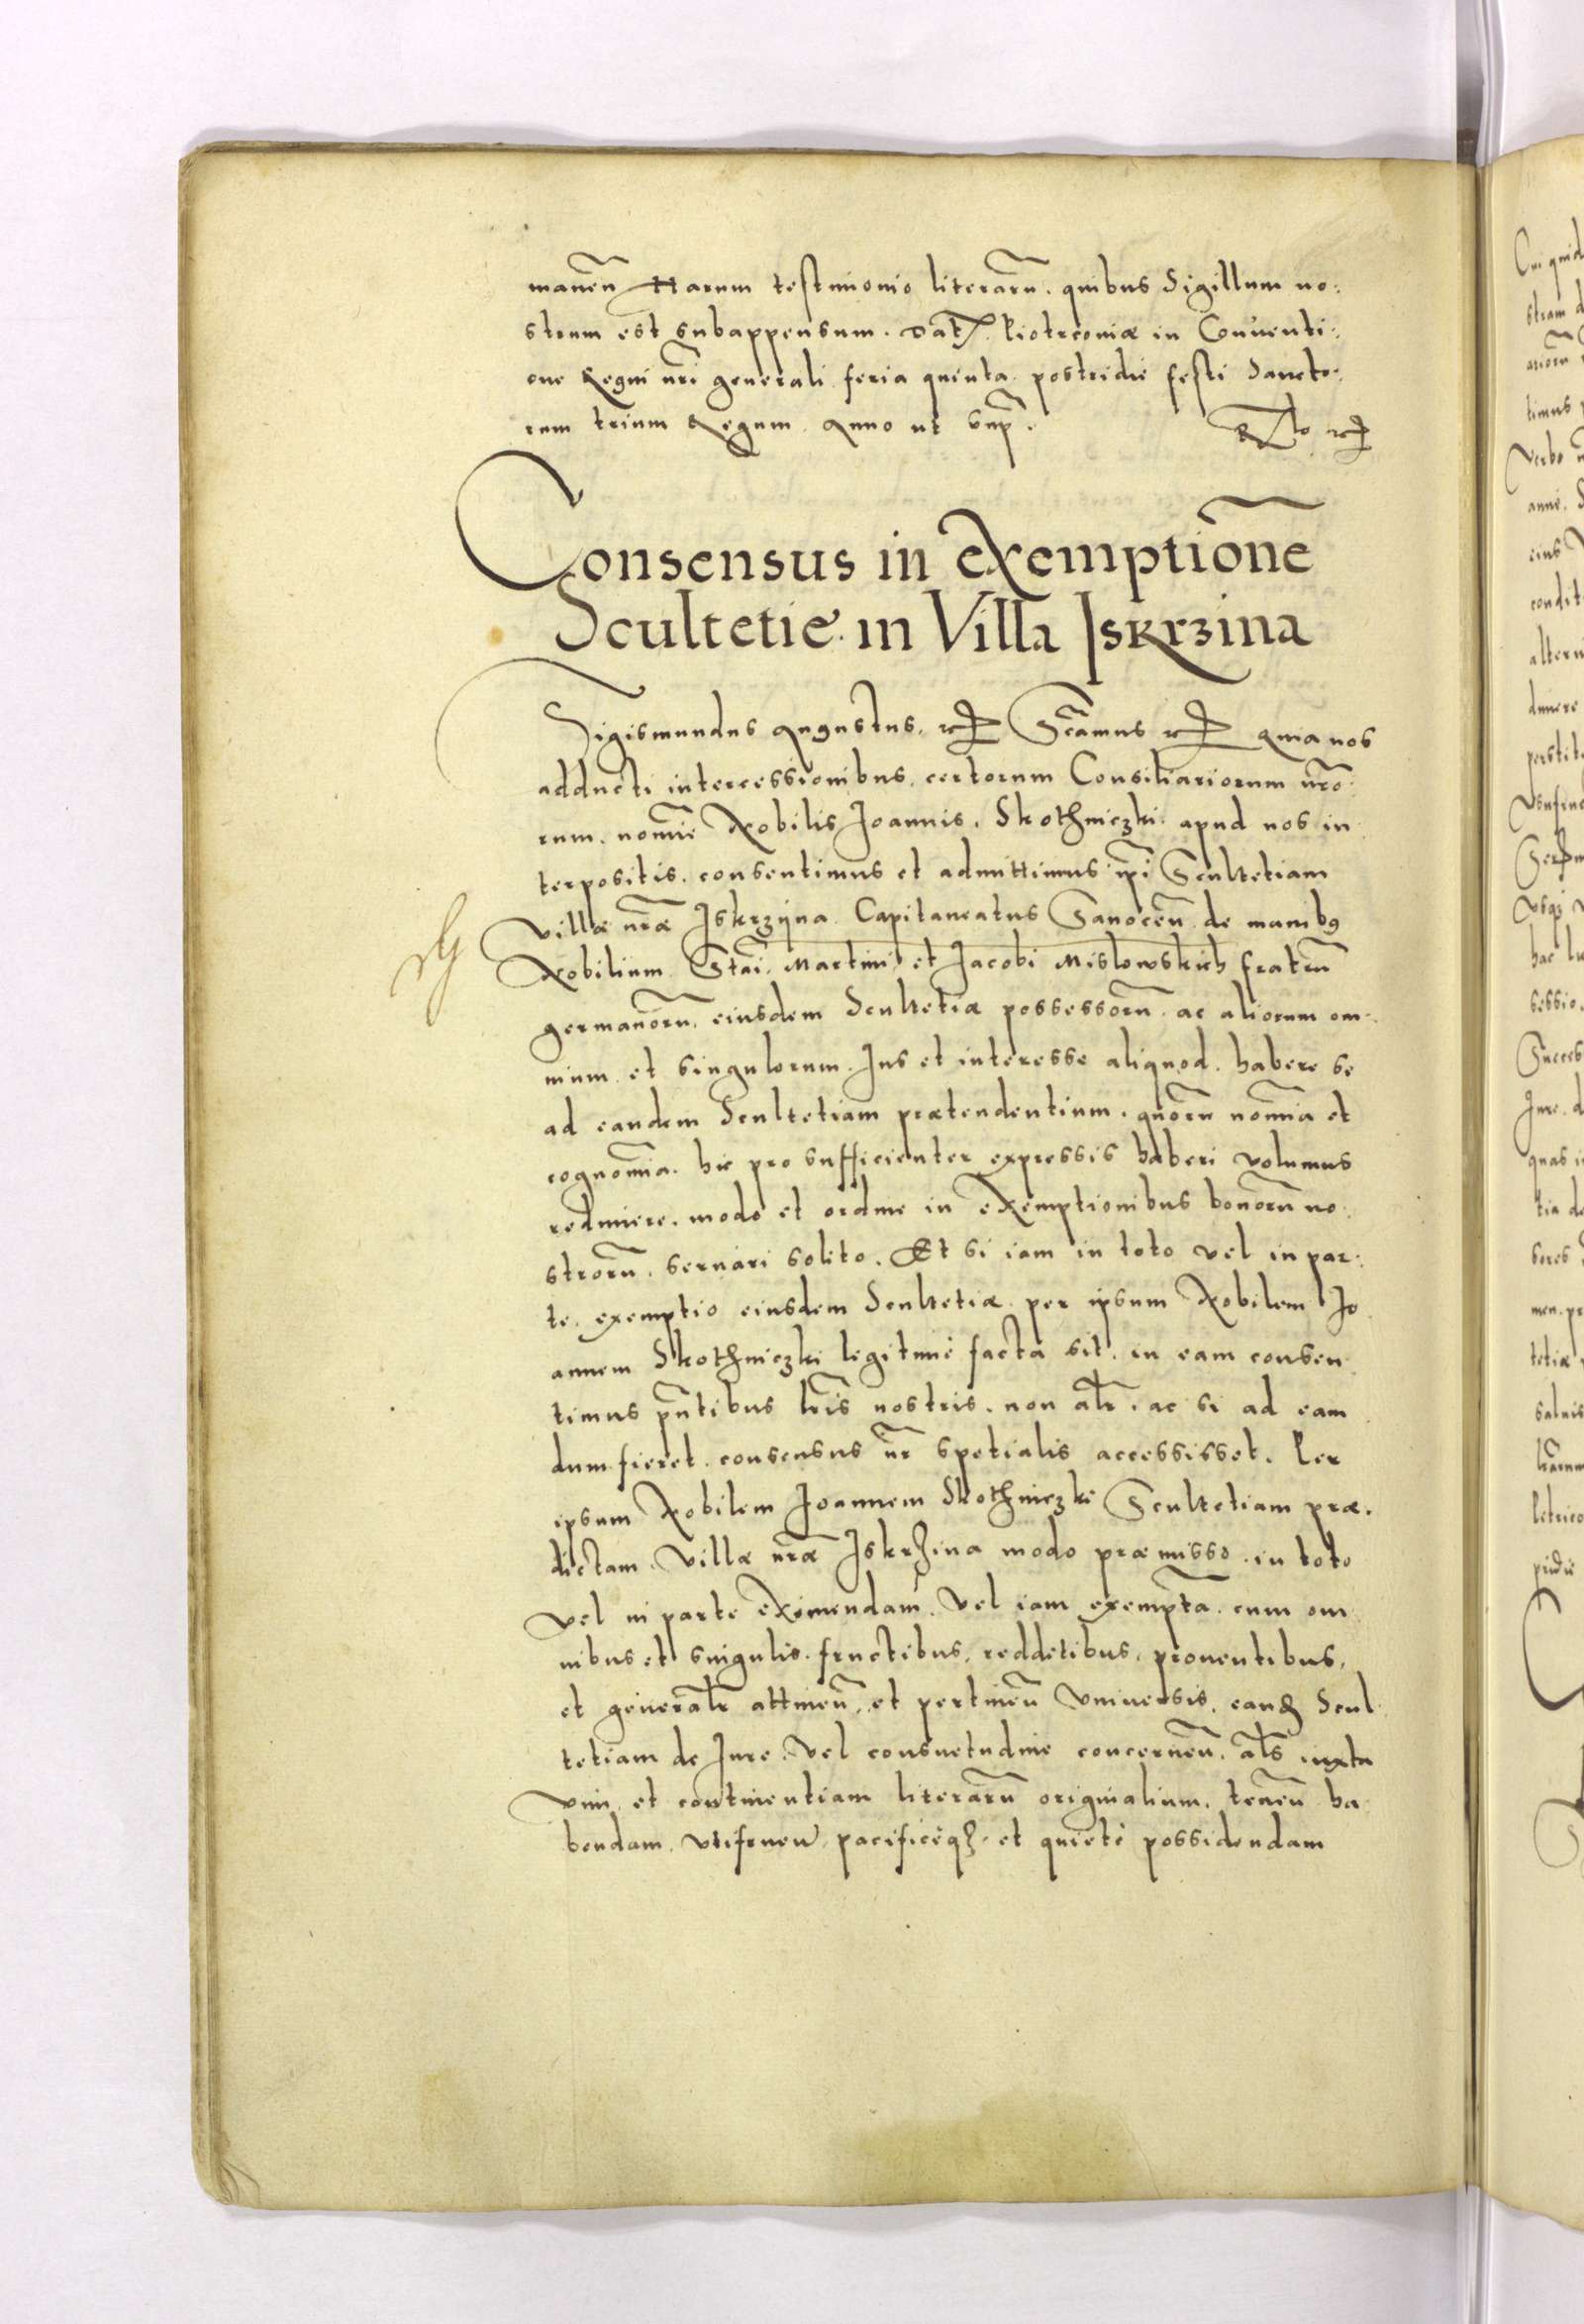 manen̄ Harum testimonio literarū. quibus Sigillum no:
strum est subappensum. Dat. Piotrcoviæ in Conventi:
one Regni nr̄i generali feria quinta postridie festi Sancto:
rum trium Regum. Anno ut sup̄.
Consensus in exemptionē
Scultetie in Villa Iskrzina
Sigismundus Augustus, Sc̄amus quia nos
adducti intercessionibus, certorum Consiliariorum nr̄o:
rum, nom̄ie Nobilis Joannis, Skothniczki apud nos in
terpositis. consentimus et admittimus ip̄i Scultetiam
villæ nr̄æ Iskrzÿna Capitaneatus Sanocen̄ de manibꝰ
Nobilium Stai Martini et Jacobi Mislowskich fratrū
germanorū, eiusdem Scultetiæ possessorū. ac aliorum om:
nium et singulorum. Jus et interesse aliquod. habere se
ad eandem Scultetiam prætendentium. quorū nom̄ia et
cognom̄ia. hic pro sufficienter expressis haberi volumus
redimere. modo et ordine in exemptionibus bonorū no:
strorū. servari solito. Et si iam in toto vel in par:
te. exemptio eiusdem Scultetiæ per ipsum Nobilem Jo
annem Skothniczki legitime facta sit. in eam consen
timus pn̄tibus lr̄is nostris. non alr̄. ac si ad eam
dum fieret. consensus nr̄ spetialis accessisset. Per
ipsum Nobilem Joannem Skothniczki Scultetiam præ.
dictam. Villæ nr̄æ Iskrzina modo præmisso. in toto
vel in parte eximendam. vel iam exemptā. cum om
nibus et singulis. fructibus, redditibus, proventibus,
et generalr̄ attinen̄. et pertinen̄ Universis. eanꝗ Scul
tetiam de Jure. vel consuetudine concernen̄. al̄s iuxta
vim et continentiam literarū originalium. tenen̄ ha
bendam. utifruen̄ pacificeqꝫ et quiete possidendam